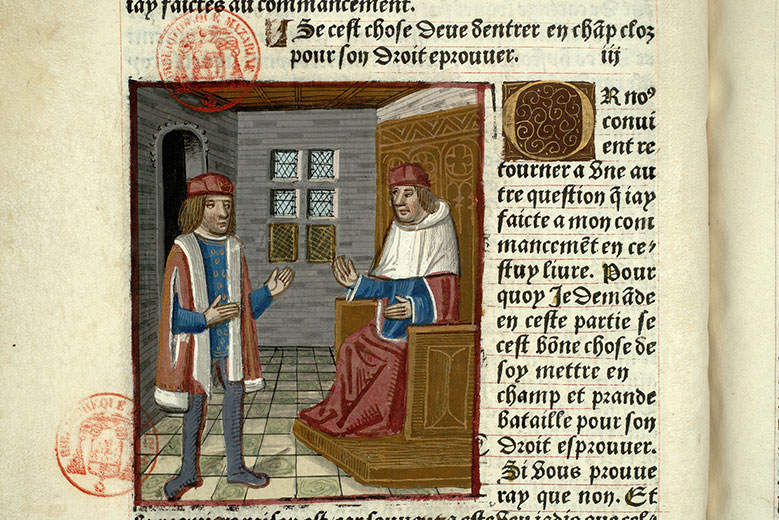 iay faictes au commancement.
Se cest chose Deue dentrer en chãp cloz
pour son Droit eprouuer. iij
BIBLIOTHEQUE MAZARINE
OR noꝰ
conui
ent re
tourner a Vne au
tre question q̃ iay
faicte a mon com
mancemẽt en ce/
stuy liure. Pour
quoy Je demãde
en ceste partie se
cest bõne chose de
soy mettre en
champ et prande
bataille pour son
Droit esprouuer.
Si Vous prouue
ray que non. Et